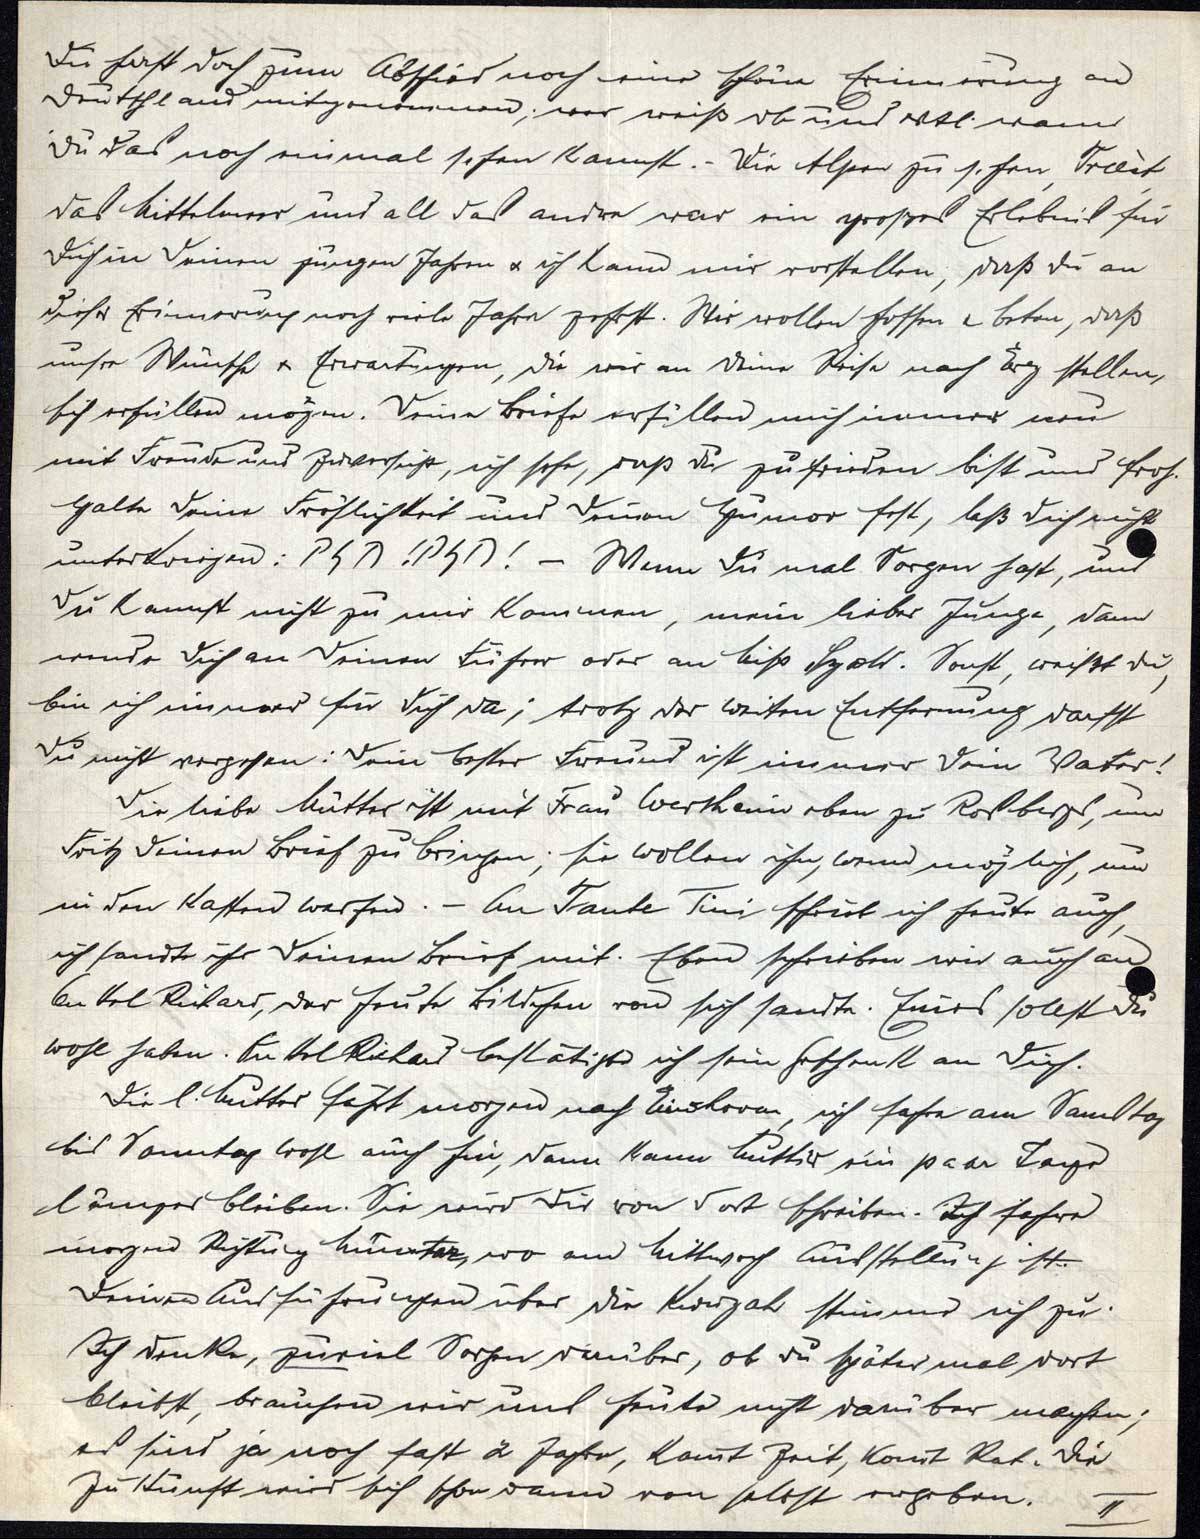 Du hast doch zum Abschied noch eine schöne Erinnerung an
Deutschland mitgenommen; wer weiß ob und evtl. wann
Du das noch einmal sehen kannst. - Die Alpen zu sehen, Triest,
das Mittelmeer und all das andre war ein großes Erlebnis für
Dich in Deinen jungen Jahren & ich kann mir vorstellen, daß Du an
dieser Erinnerung noch viele Jahre zehrst. Wir wollen hoffen & beten, daß
unsre Wünsche & Erwartungen, die wir an Deine Reise nach Erez stellen,
sich erfüllen mögen. Deine Briefe erfüllen mich immer neu
mit Freude und Zuversicht, ich sehe, daß Du zufrieden bist und froh.
Halte Deine Fröhlichkeit und Deinen Humor fest, laß Dich nicht
unterkriegen: חזק! חזק! — Wenn Du mal Sorgen hast, und
Du kannst nicht zu mir kommen, mein lieber Junge, dann
wende Dich an Deinen Führer oder an Miss Szold. Sonst, weißt Du,
bin ich immer für Dich da; trotz der weiten Entfernung darfst
Du nicht vergessen: Dein bester Freund ist immer Dein Vater!
Die liebe Mutter ist mit Frau Wertheim eben zu Rosbergs, um
Fritz Deinen Brief zu bringen; sie wollen ihn, wenn möglich, nur
in den Kasten werfen. - An Tante Tini schrieb ich heute auch,
ich sandte ihr Deinen Brief mit. Eben schrieben wir auch an
Onkel Richard, der heute Bildchen von sich sandte. Eines sollst Du
wohl haben. Onkel Richard bestätigte ich sein Geschenk an Dich.
Die l. Mutter fährt morgen nach, ich fahre am Samstag
bis Sonntag wohl auch hin, dann kann Mutter ein paar Tage
länger bleiben. Sie wird Dir von dort schreiben. Ich fahre
morgen Richtung Münster, wo am Mittwoch Ausstellung ist.
Deinen Ausführungen über die Kwuzah stimme ich zu.
Ich denke, zuviel Sorgen darüber, ob Du später mal dort
bleibst, brauchen wir uns heute nicht darüber machen;
es sind ja noch fast 2 Jahre, kommt Zeit, kommt Rat. Die
Zukunft wird sich schon dann von selbst ergeben.
II